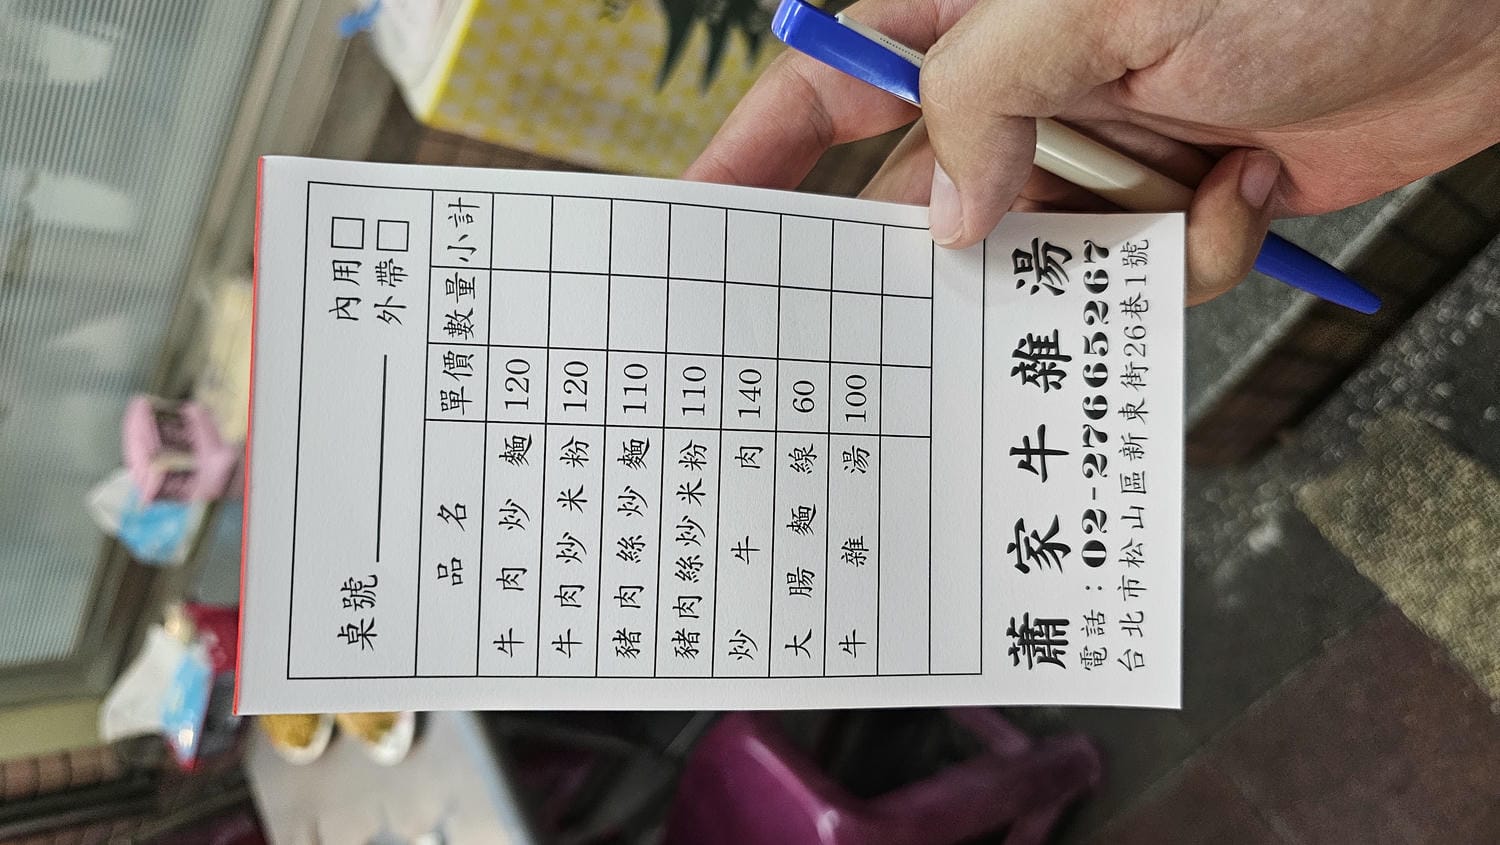 桌號
內用□
外帶□
品名 單價 數量 小計
牛肉炒麵 120
牛肉炒米粉 120
豬肉絲炒麵 110
豬肉絲炒米粉 110
炒牛肉 140
大腸麵線 60
牛雜湯 100
蕭家牛雜湯
電話：02-27665267
台北市松山區新東街26巷1號